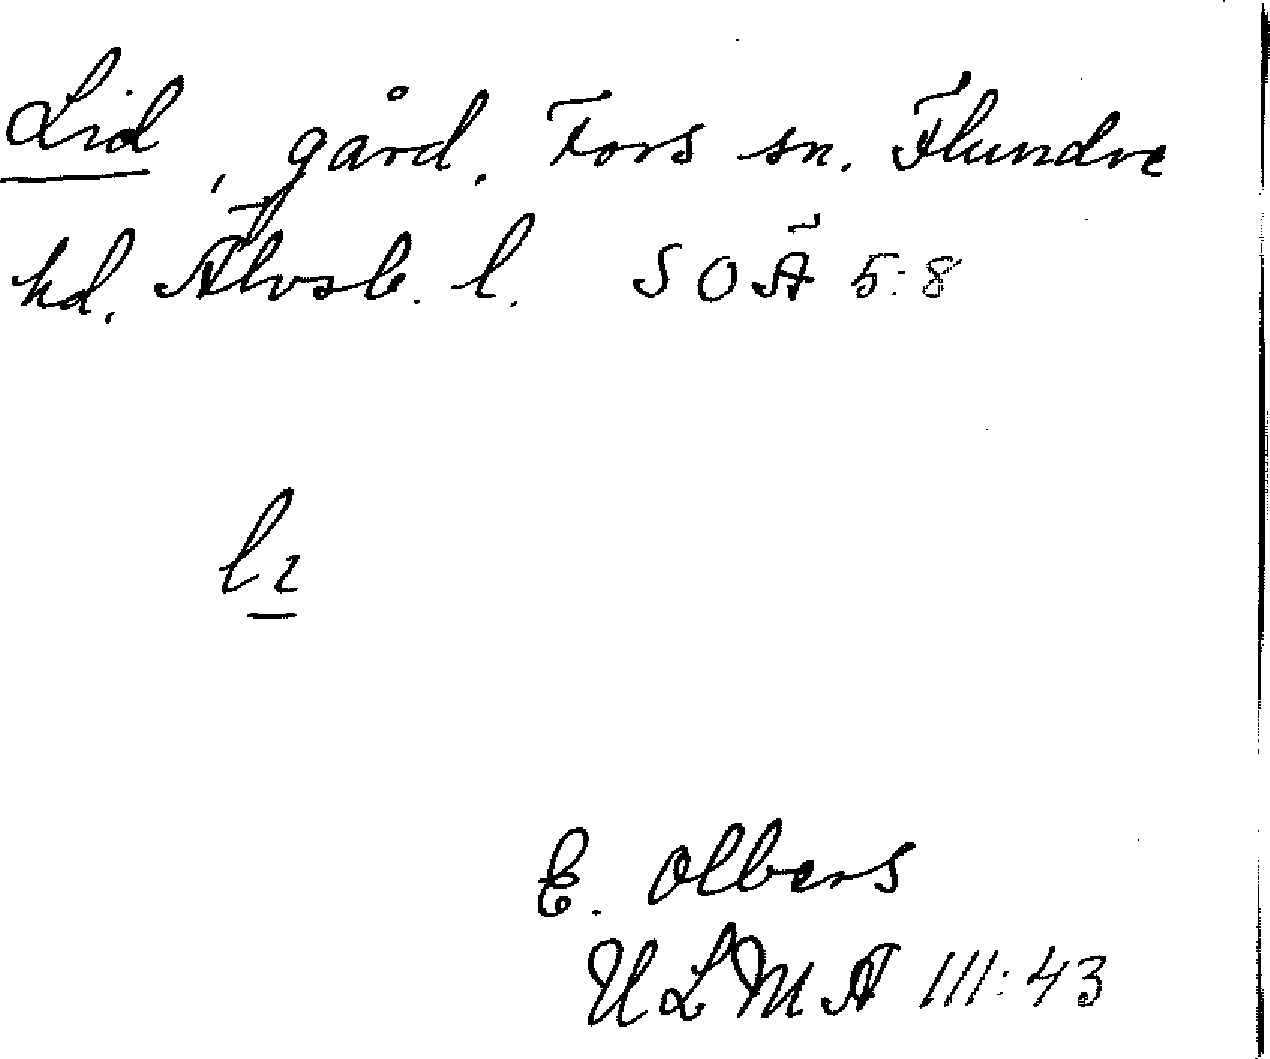 Lid, gård. Fors sn. Flundre
hd. Älvsb. l. SOÄ 5:8
lı
E. Olbers
ULMA 111:43